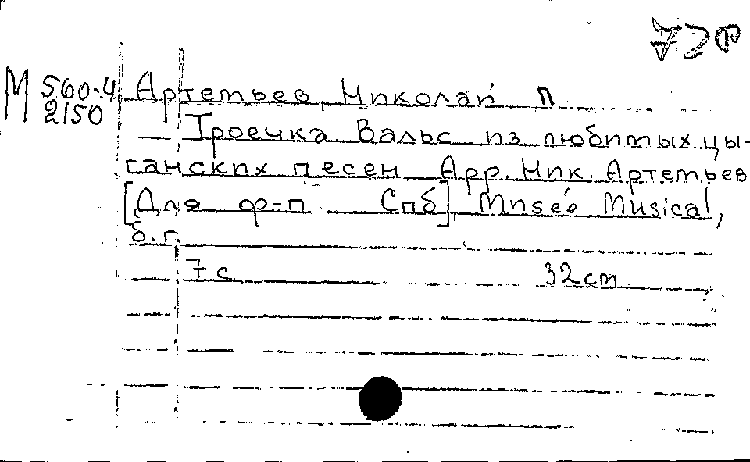 М 560-4
2150
Артемьев, Николай П.
Троечка. Вальс из любимых цы-
ганских песен. Арр. Ник. Артемьев
[Для ф-п. Спб], Musée Musical,
б. г.
7 с. 32 cm